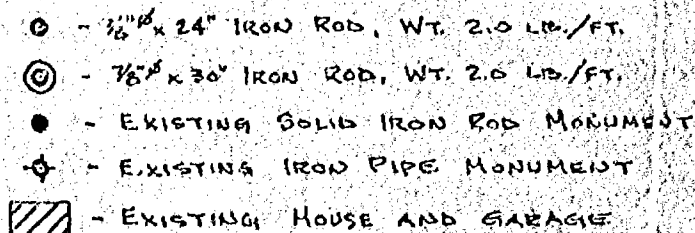 - 7/8"ø x 24" IRON ROD, WT. 2.0 LB./FT.
- 7/8"ø x 30" IRON ROD, WT. 2.0 LB./FT.
- EXISTING SOLID IRON ROD MONUMENT
- EXISTING IRON PIPE MONUMENT
- EXISTING HOUSE AND GARAGE